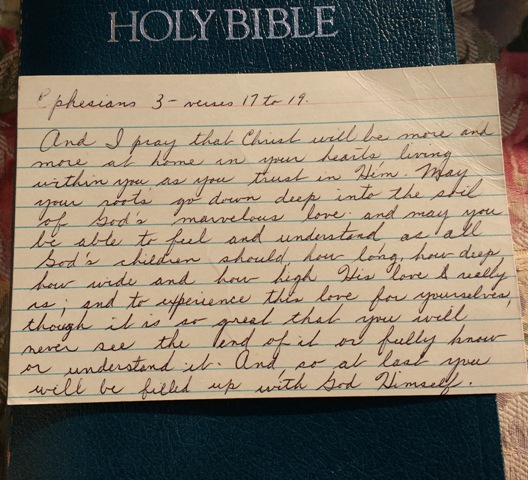 HOLY BIBLE
Ephesians 3 - verses 17 to 19.
And I pray that Christ will be more and
more at home in your hearts living
within you as you trust in Him. May
your roots go down deep into the soil
of God's marvelous love. and may you
be able to feel and understand as all
God's children should, how long, how deep,
how wide and how high His love & really
is; and to experience this love for yourselves,
though it is so great that you will
never see the end of it or fully know
or understand it. And so at last you
will be filled up with God Himself.